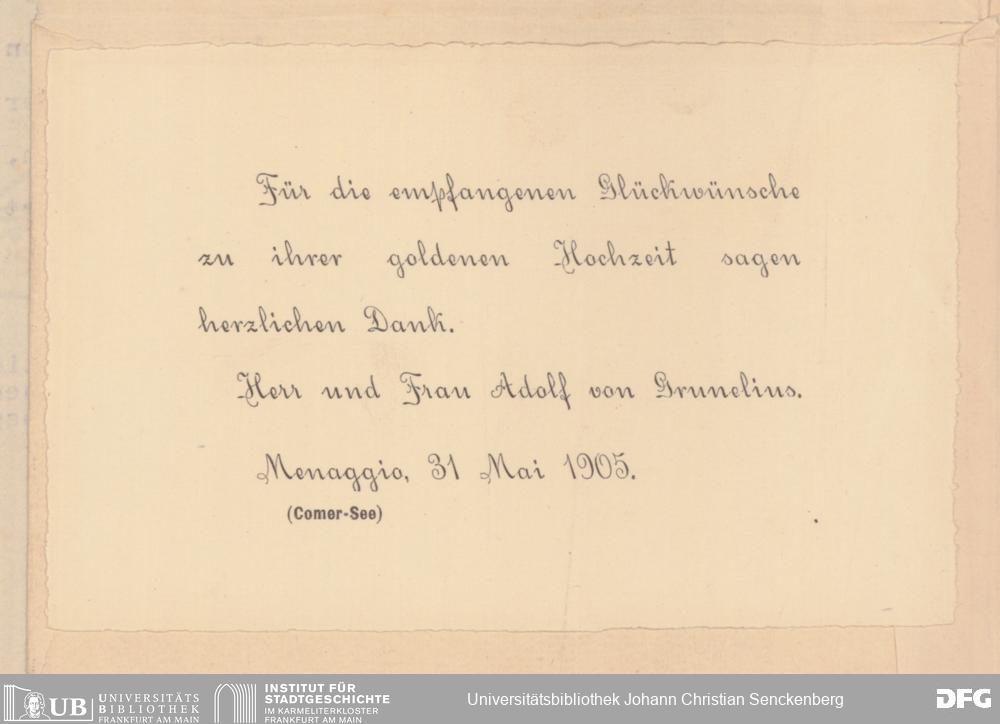 Für die empfangenen Glückwünsche
zu ihrer goldenen Hochzeit sagen
herzlichen Dank.
Herr und Frau Adolf von Grunelius.
Menaggio, 31 Mai 1905.
(Comer-See)
UB UNIVERSITÄTS
BIBLIOTHEK
FRANKFURT AM MAIN
INSTITUT FÜR
STADTGESCHICHTE
IM KARMELITERKLOSTER
FRANKFURT AM MAIN
Universitätsbibliothek Johann Christian Senckenberg
DFG